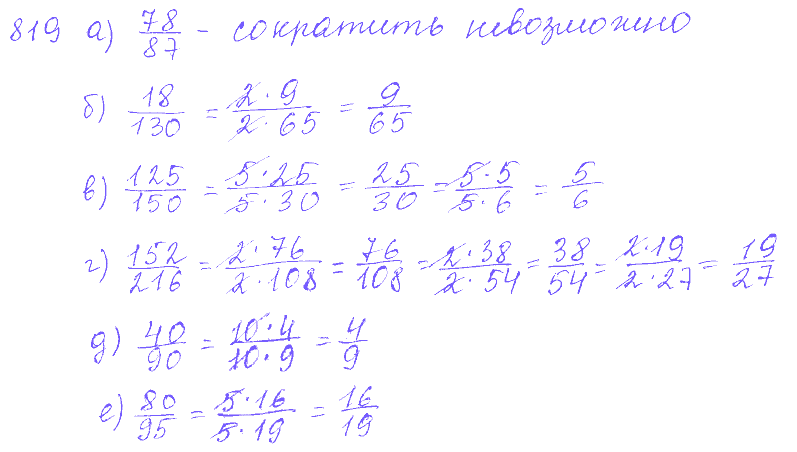 819 а) 78/87 - сократить невозможно
б) 18/130 = 2·9/2·65 = 9/65
в) 125/150 = 5·25/5·30 = 25/30 = 5·5/5·6 = 5/6
г) 152/216 = 2·76/2·108 = 76/108 = 2·38/2·54 = 38/54 = 2·19/2·27 = 19/27
д) 40/90 = 10·4/10·9 = 4/9
е) 80/95 = 5·16/5·19 = 16/19